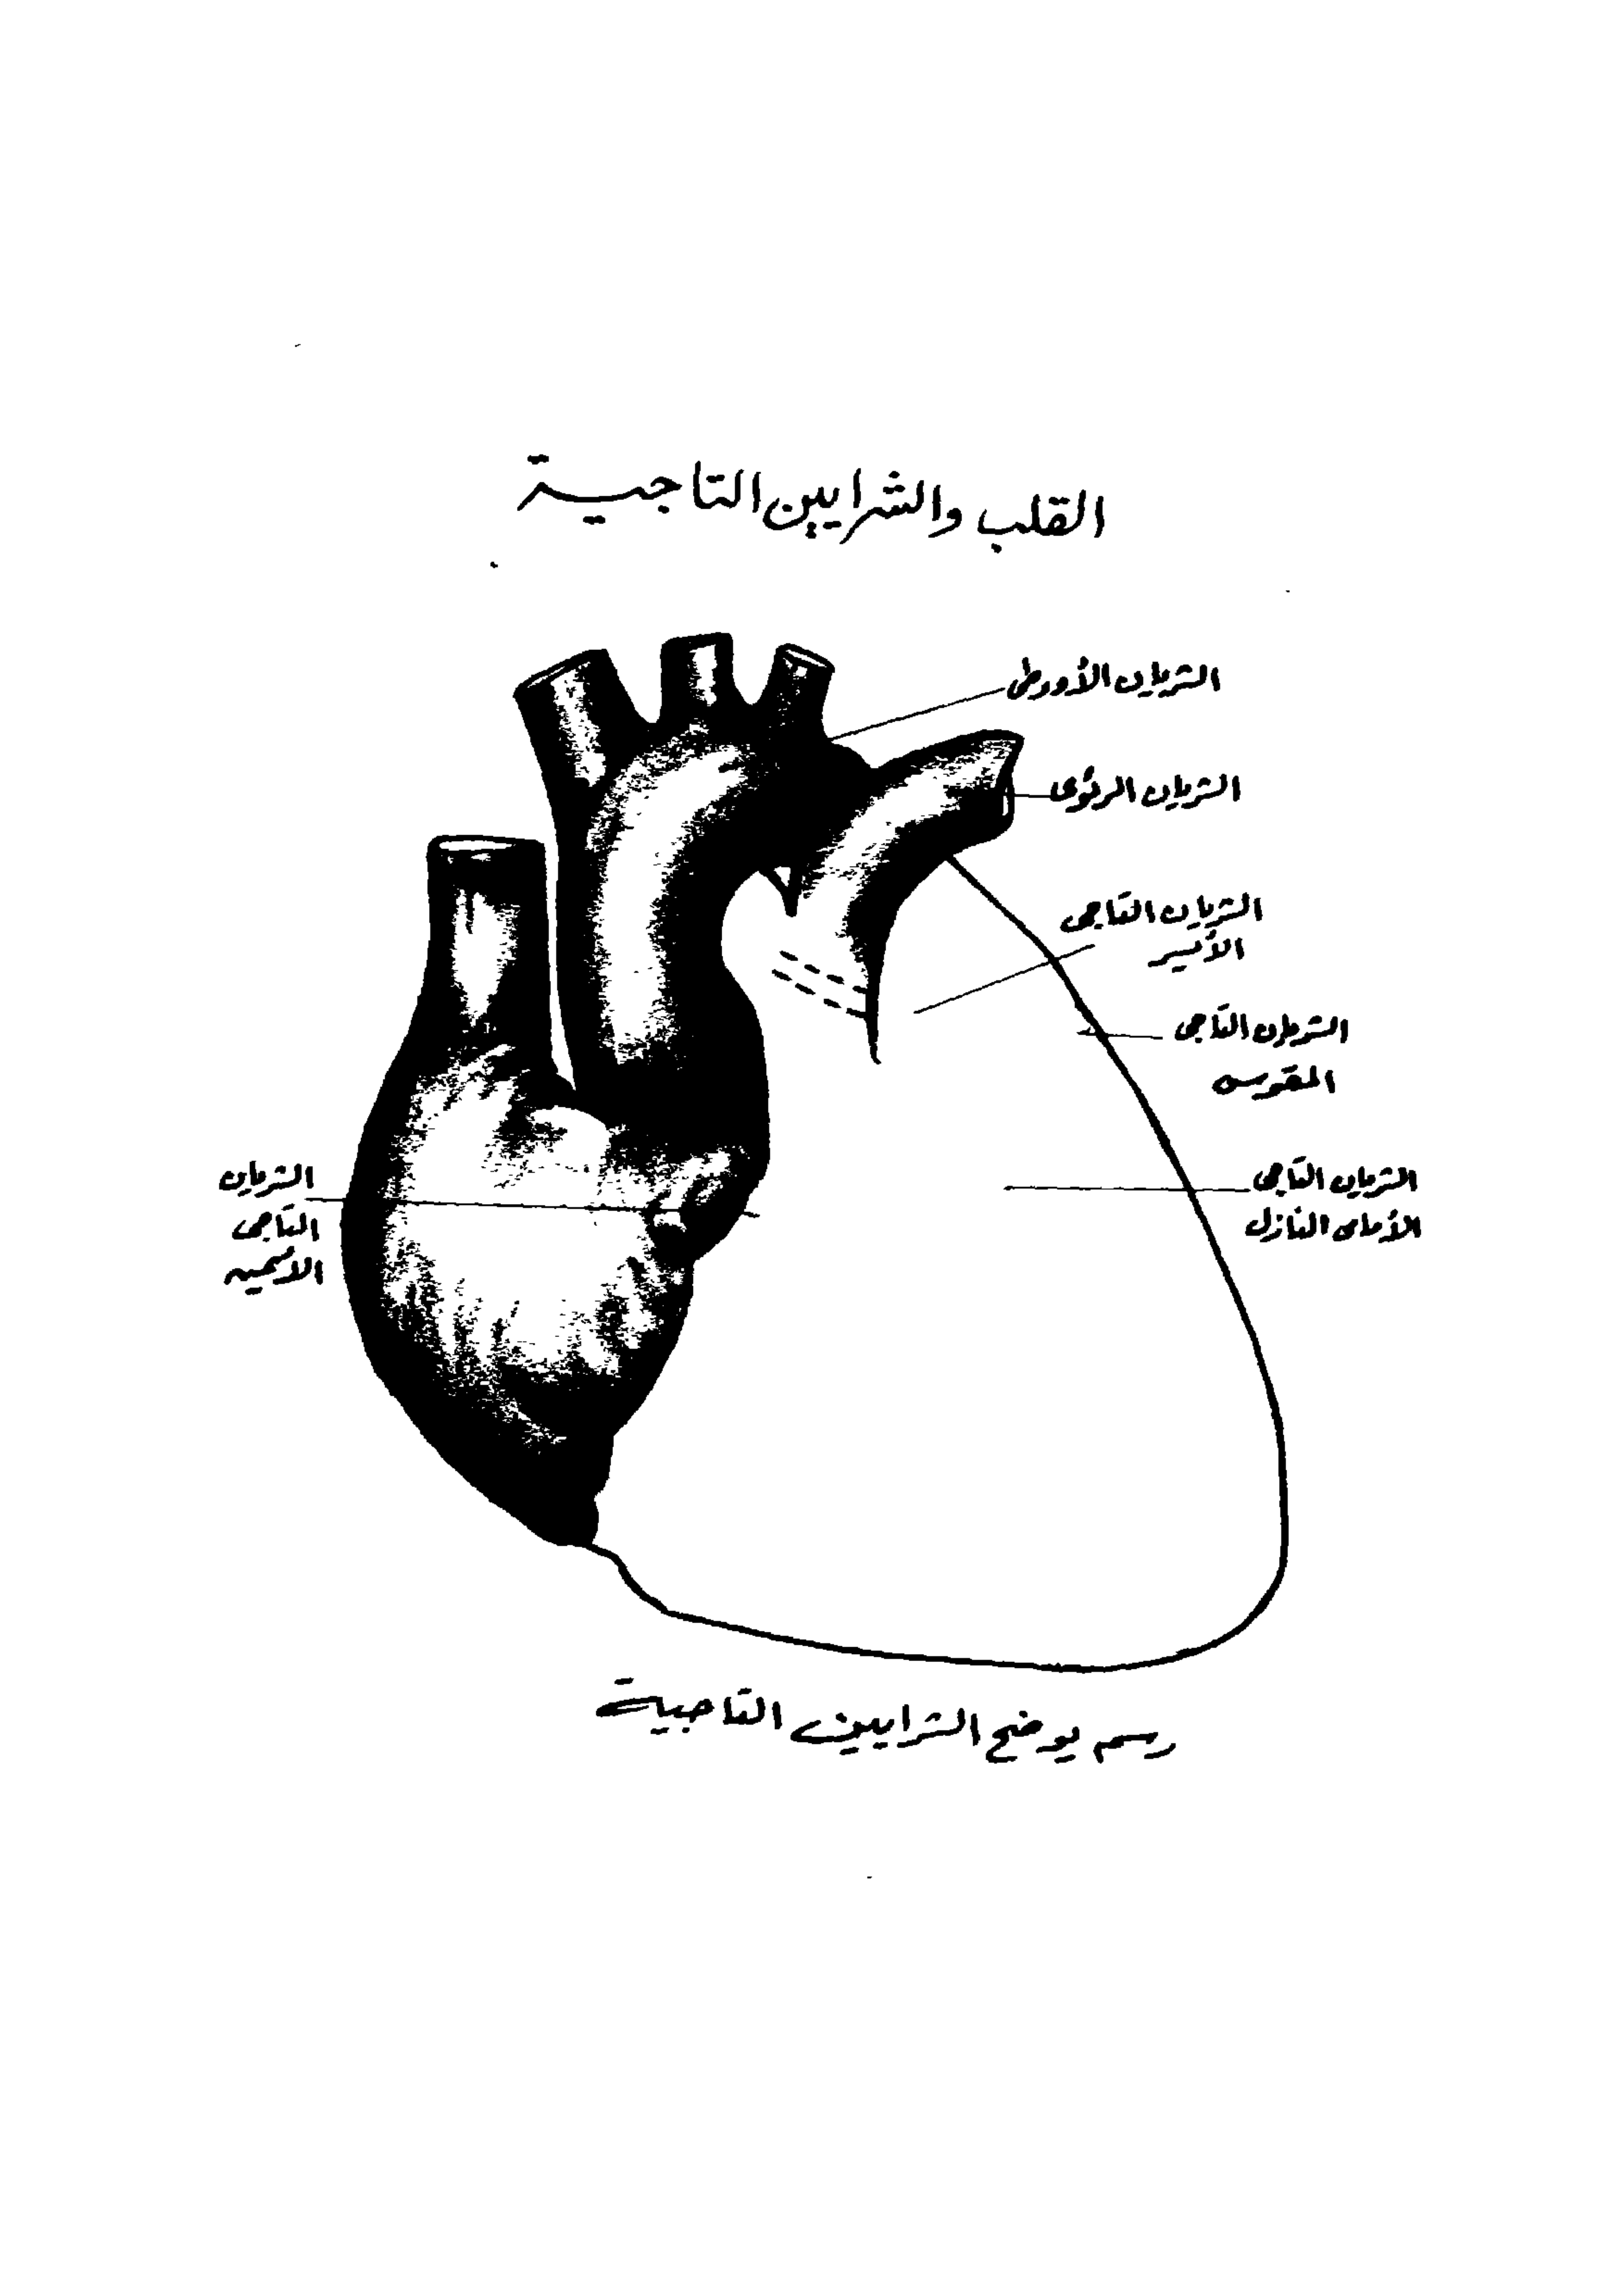 القلب والشرايين التاجية
الشريان الأورطى
الشريان الرئوى
الشريان التاجى
الأيسر
الشريان التاجى
المقوس
الشريان التاجى
الأمامى النازل
الشريان
التاجى
الأيمن
رسم يوضح الشرايين التاجية